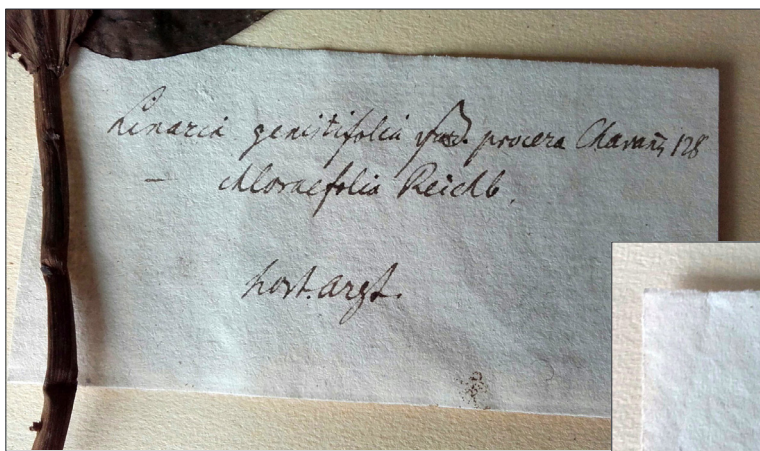 Linaria genistifolia procera Chavañ, 128
— chloraefolia Reichb.
hort. argt.